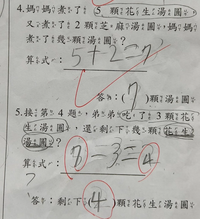 4.媽媽煮了5顆花生湯圓,
又煮了2顆芝麻湯圓,媽媽
煮了幾顆湯圓?
算式:5+2=7
答:(7)顆湯圓
5.接第4題,弟弟吃了3顆花
生湯圓,還剩下幾顆花生
湯圓?
算式:7-3=4
答:剩下(4)顆花生湯圓